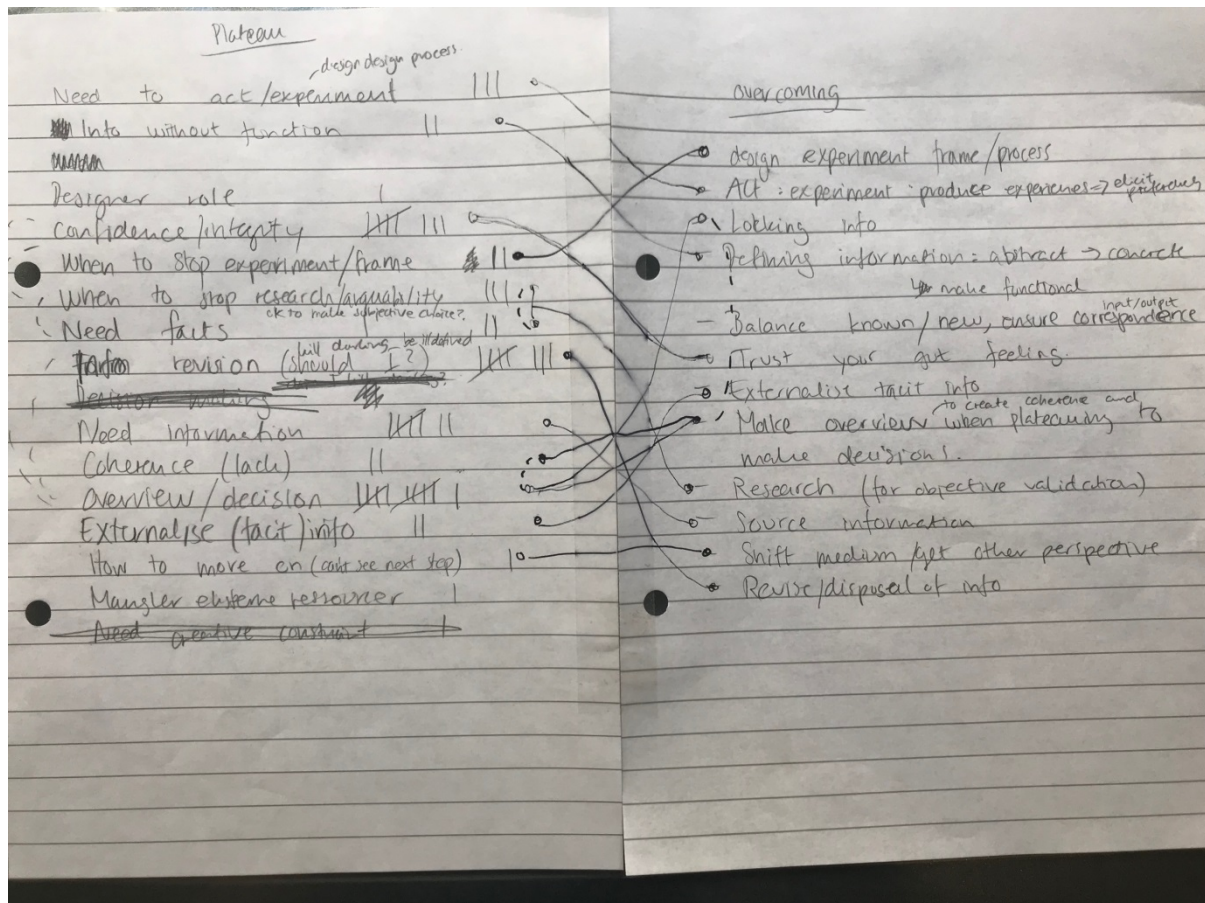 Plateau
design design process.
Need to act/experiment |||
Info without function ||
Designer role |
Confidence/integrity 卌 |||
When to stop experiment/frame ||
When to stop research/arguability |||
ok to make subjective choice?.
Need facts ||
kill darling, be ill defined
revision (should I?) 卌 |||
Decision making
Need information 卌 ||
Coherence (lack) ||
Overview/decision 卌 卌 |
Externalise (tacit) info ||
How to move on (can't see next step) |
Mangler eksterne ressourcer |
Need creative constraint |
overcoming
design experiment frame/process
Act : experiment : produce experiences => elicit preferences
Locking info
Defining information: abstract → concrete
make functional
input/output
Balance known/new, ensure correspondence
Trust your gut feeling.
Externalise tacit info
to create coherence and
Make overview when plateauing to
make decisions.
Research (for objective validation)
Source information
Shift medium/get other perspective
Revise/disposal of info